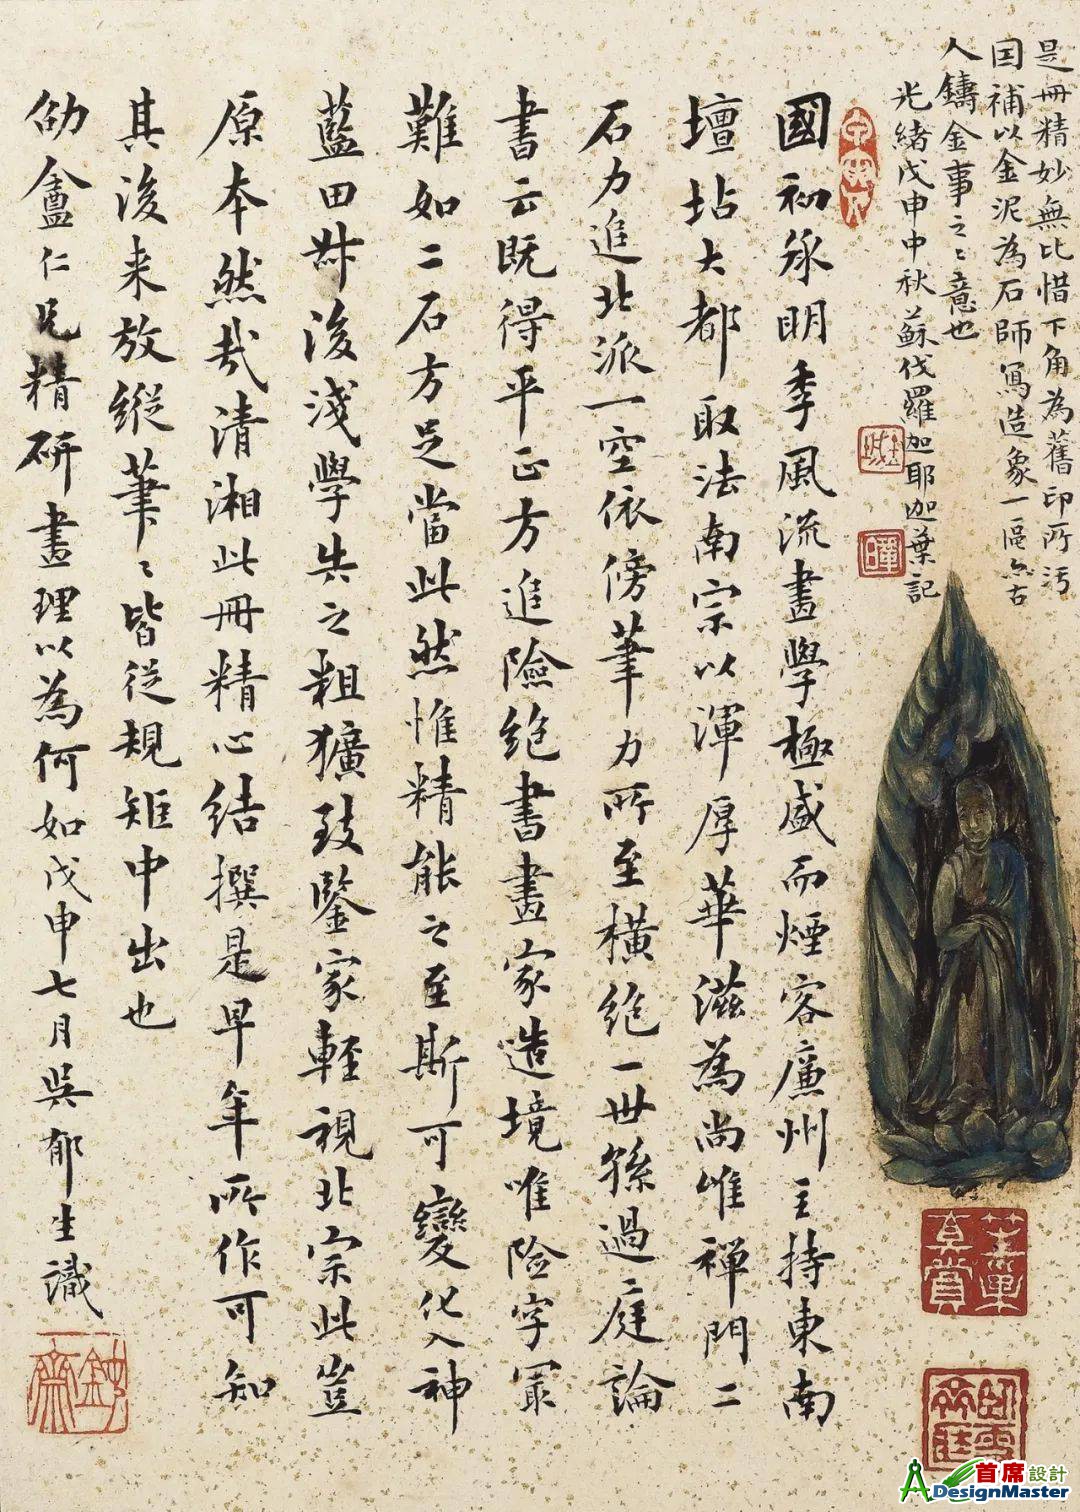 是冊精妙無比惜下角為舊印所污
因補以金泥為石師寫造象一區亦古
人鑄金事之之意也
光緒戊申中秋蘇伐羅迦耶迦葉記
國初承明季風流畫學極盛而煙客廉州主持東南
壇坫大都取法南宗以渾厚華滋為尚惟禪門二
石力追北派一空依傍筆力所至橫絕一世孫過庭論
書云既得平正方追險絕書畫家造境唯險字最
難如二石方足當此然惟精能之至斯可變化入神
藍田尗後淺學失之粗獷致鑒家輕視北宗此豈
原本然哉清湘此冊精心結撰是早年所作可知
其後來放縱筆筆皆從規矩中出也
劬盦仁兄精研畫理以為何如戊申七月吳郁生識
真賞
鈍齋
首席設計
ADesignMaster